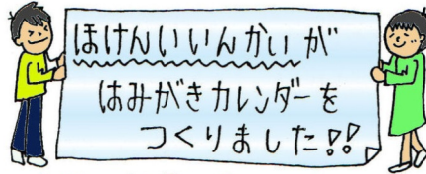 ほけんいいんかいが
はみがきカレンダーを
つくりました!!